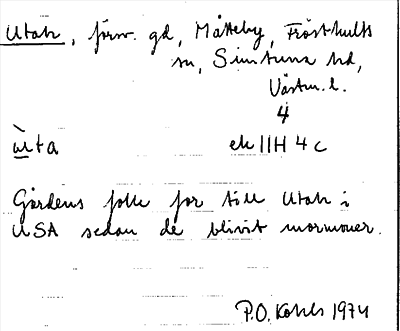 Utah, förv. gd, Måtteby, Frösthults
sn, Simtuna hd,
Västm. l.
4
ùta ek 11H 4c
Gårdens folk for till Utah i
USA sedan de blivit mormoner.
P.O. Kohls 1974